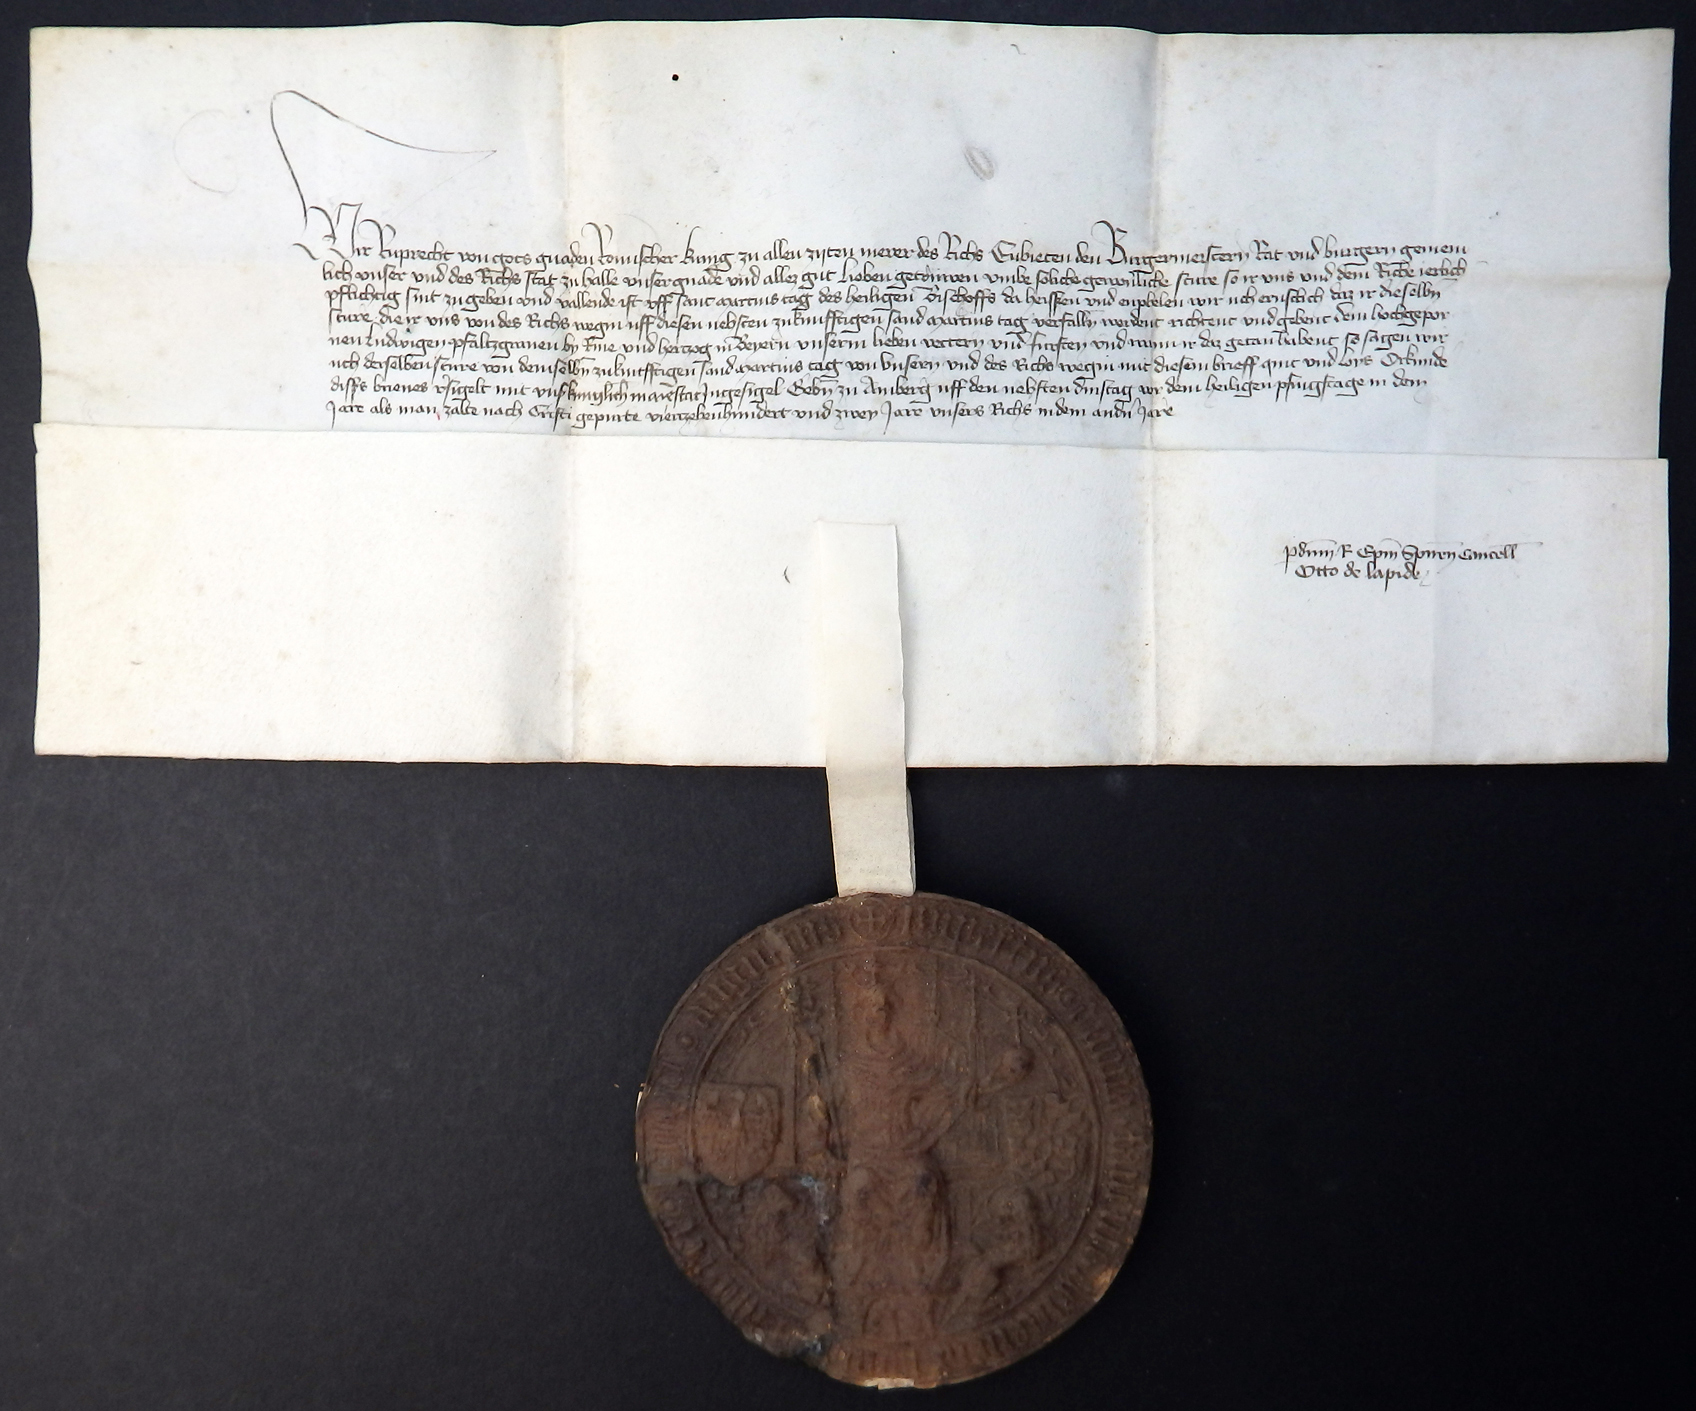 Wir Ruprecht von gots gnaden Romischer kunig zu allen zijten merer des Richs Enbieten den Burgermeistern Rat und burgern gemein
lich unser und des Richs stat zu halle unser gnade und allez gut lieben getruwen umbe soliche gewonliche sture so ir uns und dem Riche ierlich
pflichtig sint zu geben und vallende ist uff sant martins tag des heiligen Bischoffs da heissen und enphelen wir uch ernstlich daz ir dieselbn
sture die ir uns von des Richs wegin uff diesen nehsten zukunfftigen sand martins tag verfalln werdent richtent und gebent dem hochgepor
nen ludwigen pfaltzgrauen by Rine und hertzog in Beyern unserm lieben vettern und fursten und wann ir daz getan habent so sagen wir
uch derselben sture von demselbn zukunfftigen sand martins tag von unsern und des Richs wegin mit diesem brieff quit und loss Orkunde
diss brieues vsigelt mit uns kuniglich maiestat Ingesigel Gebn zu Amberg uff den nehsten dinstag vor dem heiligen pfingstage in dem
Jare als man zalte nach Cristi gepurte viertzehenhundert und zwey Jare unsers Richs in dem andn Jare
p dnm R Epm Spiren Cancell
Otto de lapide